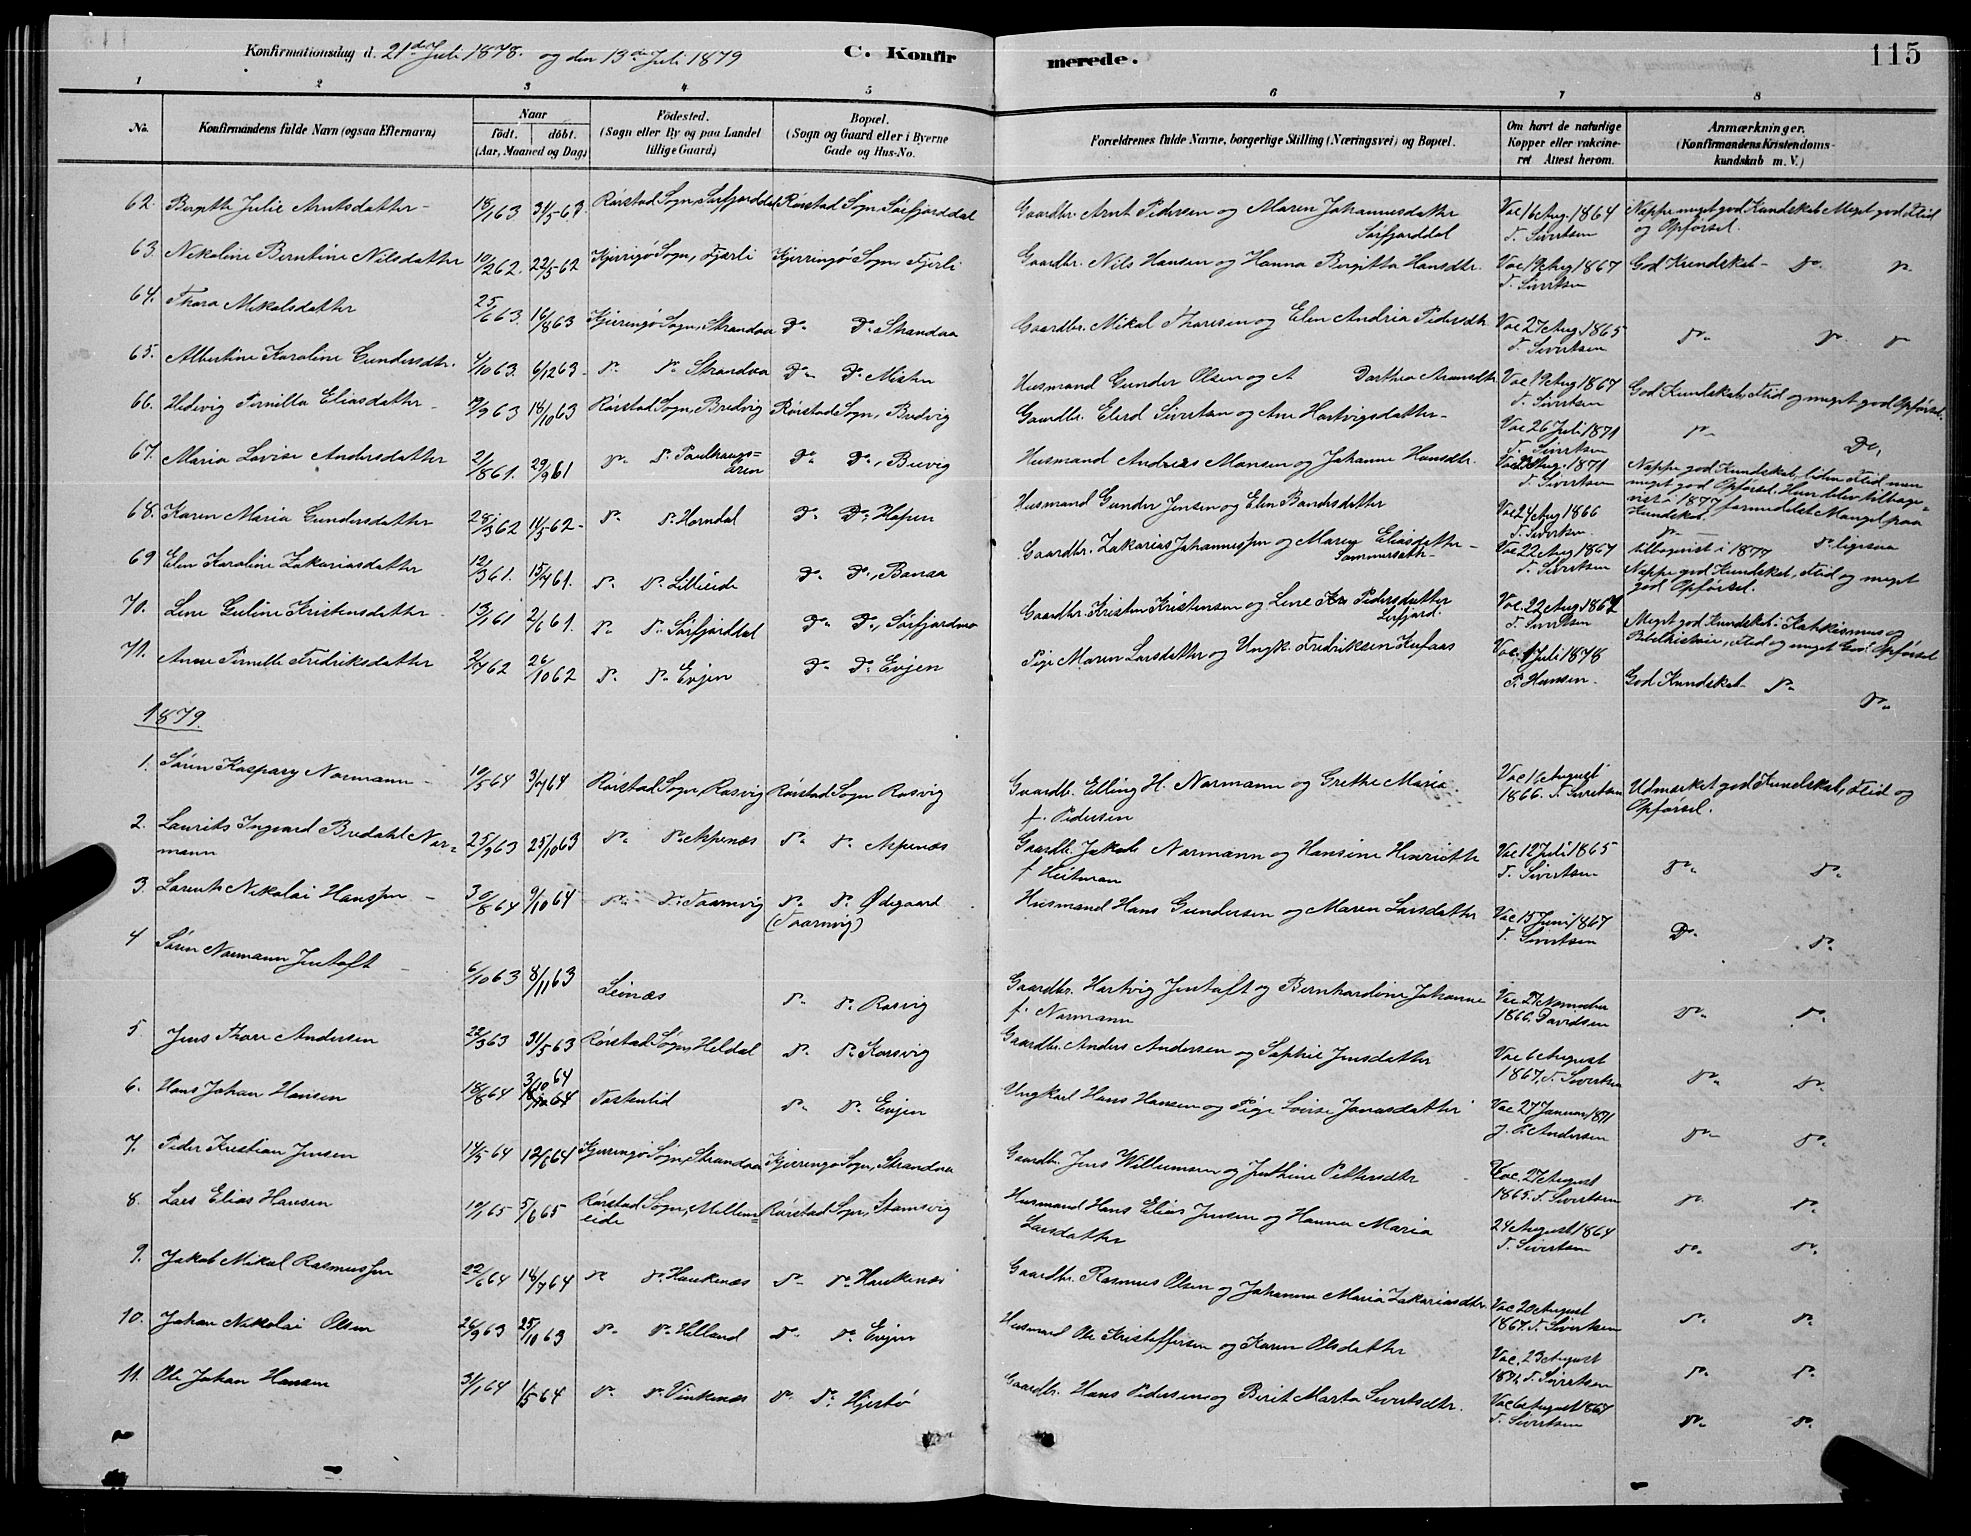 Konfirmationsdag d. 21de Juli 1878. og den 13de Juli 1879
C. Konfirmerede.
115
1 2 3 4 5 6 7 8
No.
Konfirmandens fulde Navn (ogsaa Efternavn)
Naar
födt. döbt.
(Aar, Maaned og Dag)
Födested.
(Sogn eller By og paa Landet
tillige Gaard)
Bopæl.
(Sogn og Gaard eller i Byerne
Gade og Hus-No.
Forældrenes fulde Navne, borgerlige Stilling (Næringsvei) og Bopæl.
Om havt de naturlige
Kopper eller vakcine-
ret Attest herom.
Anmærkninger.
(Konfirmandens Kristendoms-
kundskab m. V.)
62. Birgitte Julie Arntsdatter - 18/1 63 31/5 63. Rörstad Sogn, Sörfjorddal Rörstad Sogn Sörfjorddal Gaardbr. Arnt Pedersen og Maren Johannesdatter Sörfjorddal Vac 16 Aug. 1864 T. Sivertsen Neppe meget god Kundskab Meget god Flid og Opförsel.
63. Nikoline Berntine Nilsdatter 10/2 62. 22/5 62 Kjerringö Sogn, Fjærli Kjerringö Sogn, Fjerli Gaardbr. Nils Hansen og Hanna Birgitta Hansdtr. Vac 19 Aug 1867 T. Sivertsen God Kundskab - Do. Do
64. Thora Mikalsdatter 25/6 63. 16/8 63 Kjerringö Sogn, Strandaa Do Do Strandaa Gaardbr. Mikal Thoresen og Elen Andria Pedersdtr Vac 27 Aug. 1865 T. Sivertsen Do Do Do
65. Albertine Karoline Gundersdtr. 4/10 63. 6/12 63 - Do Do Strandaa Do Do Misten Husmand Gunder Olsen og A Dorthea Aronsdtr Vac 19 Aug 1867 T. Sivertsen God Kundskab, Flid og meget god Opförsel.
66. Hedevig Pernilla Eliasdatter - 7/9 63 18/10 63 Rörstad Sogn, Bredvig Rörstad Sogn, Bredvig Gaardbr. Elerd Sivertsen og Ane Hartvigsdatter - Vac 26 Juli 1871 T. Sivertsen Do Do,
67. Maria Lovise Andersdatter 2/8 61. 29/9 61 Do Do Poulhaugs= Do Do, Brevig Husmand Andreas Monsen og Johanne Hansdtr. Aug. 1871 T. Sivertsen Neppe god Kundskab, liden Flid men meget god Opförsel. Hun blev tilbage= vist i 1877 formedelst Mangel paa Kundskab.
68. Karen Maria Gundersdatter 28/3 62 11/5 62 - Do Do Horndal Do Do Hopen Husmand Gunder Jensen og Elen Bendersdatter Vac 24 Aug 1866 T. Sivertsen Do - Do ligesaa tilbagevist i 1877
69 Elen Karoline Zakariasdatter 12/3 61. 15/4 61. Do Do Lilleeide Do Do, Bonaa Gaardbr. Zakarias Johannessen og Maren Eliasdatter - Sommerseth - Vac 22 Aug 1867 T. Sivertsen Neppe god Kundskab, Flid og meget god Opförsel.
70. Lene Geline Kristensdatter 13/1 61 2/6 61. Do Do Sörfjorddal Do Do, Sörfjordmo Gaardbr. Kristen Kristensen og Lene Pedersdatter Sörfjord. Vac. 22 Aug 1867 T. Sivertsen Meget god Kundskab i Katekismus og Bibelhistorie, Flid og meget God Opförsel
71. Anne Pernille Fredriksdatter 2/4 62 26/10 62 Do Do Evjen Do Do Evjen Pige Maren Larsdatter og Ungk. Fredriksen Kufaas Vac. 1 Juli 1878 P. Hansen. God Kundskab - Do Do
1879.
1. Sören Kaspary Normann - 10/5 64 3/7 64 Rörstad Sogn, Rosvig Rörstad Sogn Rosvig Gaardb. Elling H. Normann og Grethe Maria f. Pedersen Vac 16 August 1866. T. Sivertsen Udmærket god Kundskab, Flid og Opförsel.
2. Laurits Ingvard Bredahl Nor= mann 25/9 63 25/10 63 Do Do Aspenæs Do Do Aspenæs Gaardb. Jakob Normann og Hansine Henriette f Heitman Vac 12 Juli 1865 T. Sivertsen Do Do
3. Lorents Nikolai Hanssen - 30/8 64 9/10 64 Do Do Taarnvig Do Do Ødegaard (Taarnvig) Husmand Hans Gundersen og Maren Larsdatter Vac. 15 Juni 1867 T. Sivertsen Do Do
4 Sören Normann Jentoft - 6/10 63 8/11 63 Leinæs Do Do Rosvig Gaardbr. Hartvig Jentoft og Bernhardine Johanne f. Normann Vac 27 November 1866. Davidsen Do Do
5. Jens Thore Andersen 22/3 63 31/5 63 Rörstad Sogn, Heldal Do Do Korsvig Gaardbr. Anders Andersen og Sophie Jensdatter Vac 6 August 1867, T. Sivertsen Do Do
6. Hans Johan Hansen 18/8 64 3/10 64 Tostenlid Do Do Evjen Ungkarl Hans Hansen og Pige Lovise Jonasdatter Vac 27 Januar 1871 J. P. Andersen Do Do
7. Peder Kristian Jensen 14/5 64 12/6 64 Kjerringö Sogn, Strandaa Kjerringö Sogn, Strandaa Gaardb. Jens Willumsen og Jenthine Pettersdtr Vac. 27 August 1865. T. Sivertsen Do Do
8. Lars Elias Hansen 10/1 65 5/6 65 Rörstad Sogn, Mellem= eide Rörstad Sogn, Stamsvig Husmand Hans Elias Jensen og Hanna Maria Larsdatter 24 August 1864 T. Sivertsen Do Do
9. Jakob Mikal Rasmussen 22/6 64 18/7 64 Do Do Haukenæs Do Do Haukenæs Gaardbr. Rasmus Olsen og Johanna Maria Zakariasdtr. Vac 20 August 1867. T. Sivertsen Do Do
10. Johan Nikolai Olsen 26/9 63 25/10 63 Do Do Helland Do Do Evjen Husmand Ole Kristoffersen og Karen Olsdatter Vac. 23 August T. Sivertsen Do Do
11. Ole Johan Hansen 31/1 64 1/5 64 Do Do Vinkenæs Do Do Hjertö Gaardbr. Hans Pedersen og Berit Marta Sivertsdtr. Vac 6 August 1867 T. Sivertsen Do Do